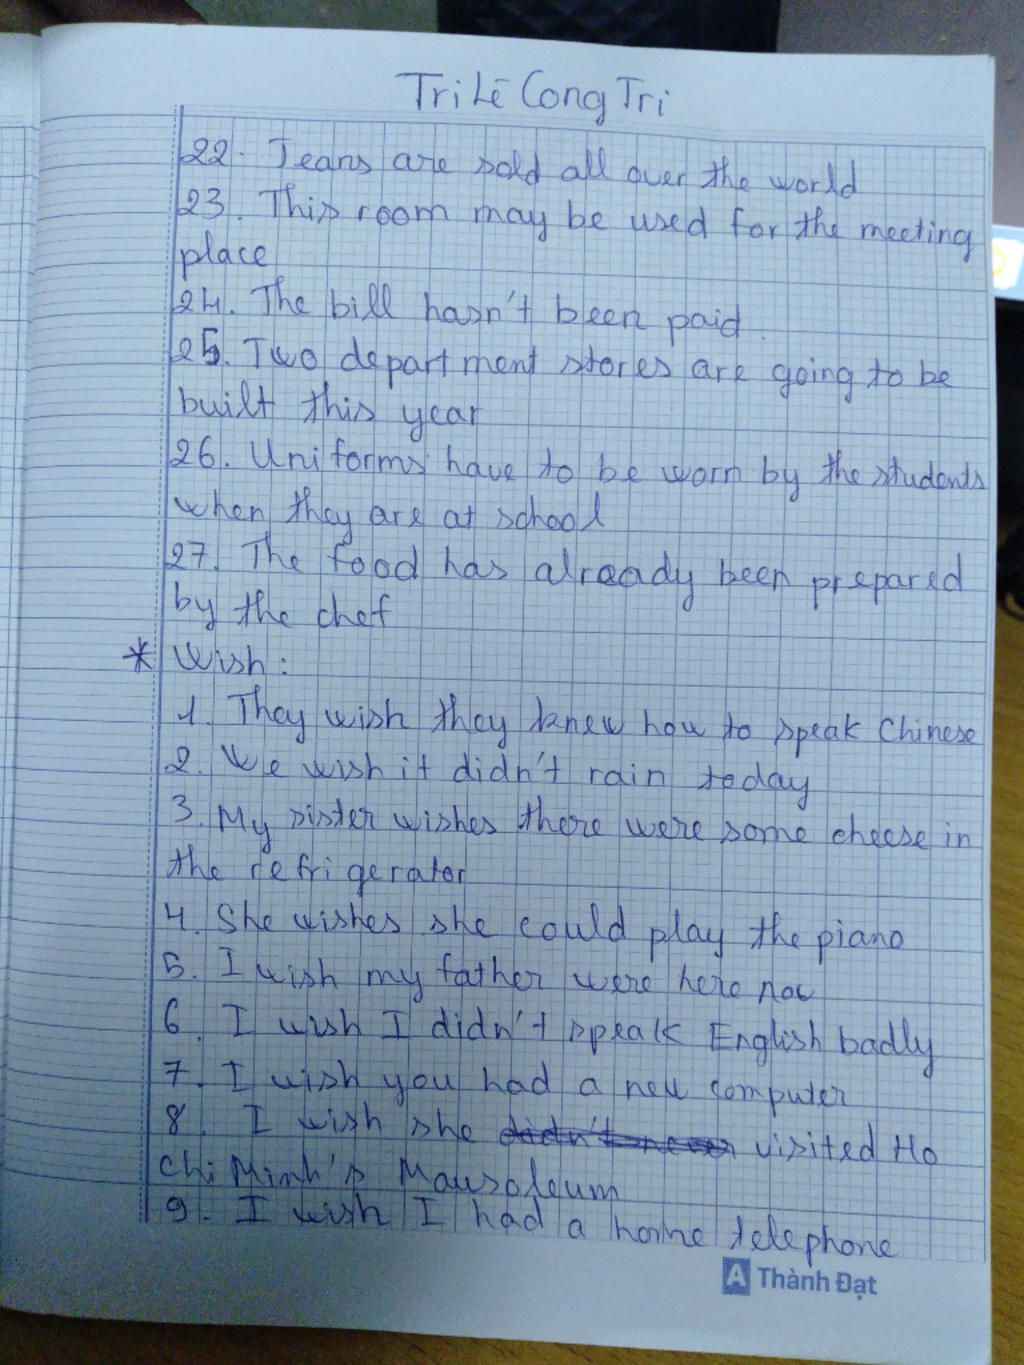 Tri Lê Cong Tri
22. Jeans are sold all over the world
23. This room may be used for the meeting
place
24. The bill hasn't been paid.
25. Two department stores are going to be
built this year
26. Uniforms have to be worn by the students
when they are at school
27. The food has already been prepared
by the chef
* Wish:
1. They wish they knew how to speak Chinese
2. We wish it didn't rain today
3. My sister wishes there were some cheese in
the refrigerator
4. She wishes she could play the piano
5. I wish my father were here now
6. I wish I didn't speak English badly
7. I wish you had a new computer
8. I wish she visited Ho
Chi Minh's Mausoleum
9. I wish I had a home telephone
A Thành Đạt